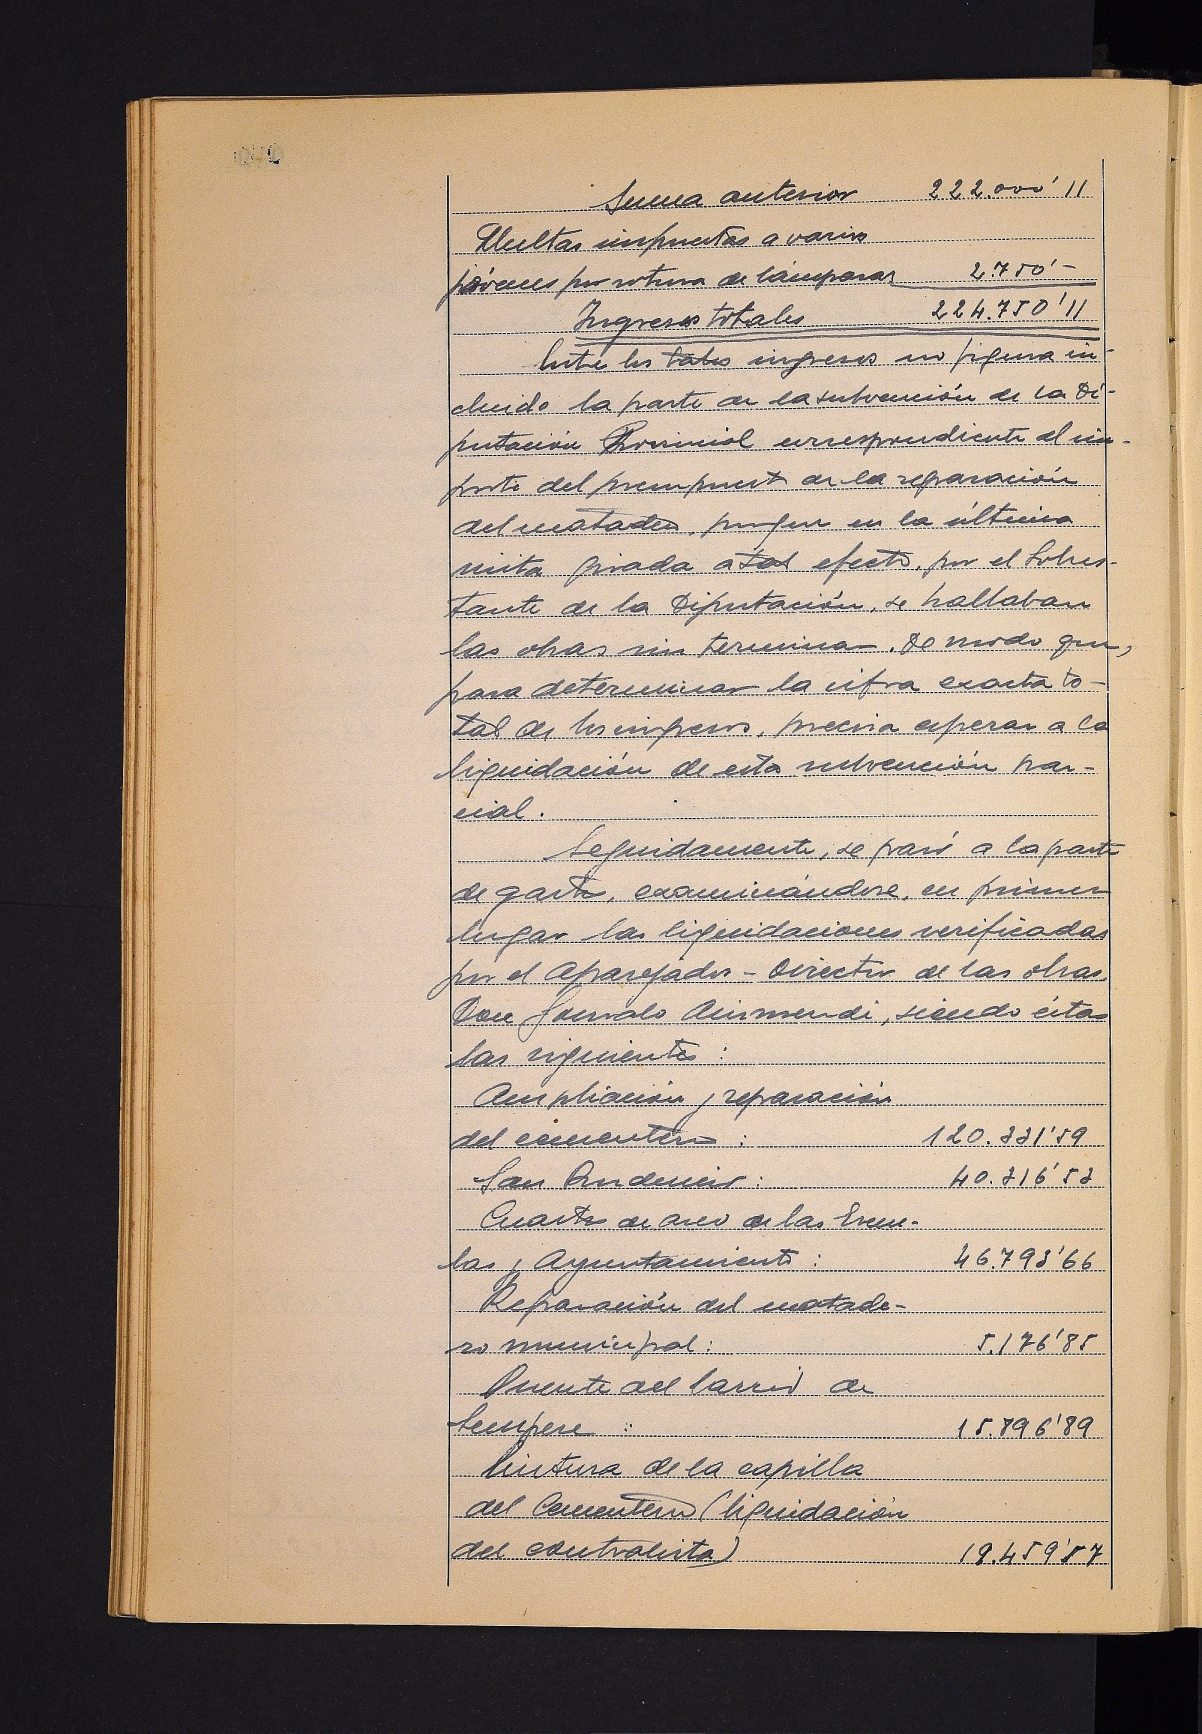 Suma anterior 222.000'11
Multas impuestas a varios
jóvenes por rotura de lámparas 2.750'-
Ingresos totales 224.750'11
Entre los tales ingresos no figura in-
cluido la parte de la subvención de la Di-
putación Provincial correspondiente al im-
porte del presupuesto de la reparación
del matadero, porque en la última
visita girada a tal efecto, por el Sobres-
tante de la Diputación, se hallaban
las obras sin terminar. De modo que,
para determinar la cifra exacta to-
tal de los ingresos, precisa esperar a la
liquidación de esta subvención par-
cial.
Seguidamente, se pasó a la parte
de gastos, examinándose, en primer
lugar las liquidaciones verificadas
por el Aparejador-Director de las obras
Don Gonzalo Auzmendi, siendo éstas
las siguientes:
Ampliación y reparación
del cementerio: 120.331'59
San : 40.316'53
Cuartos de aseo de las Escue-
las y Ayuntamiento: 46.793'66
Reparación del matade-
ro municipal: 5.176'85
Puente del barrio de
Sempere: 15.896'89
Pintura de la capilla
del Cementerio (liquidación
del contratista) 19.459'57